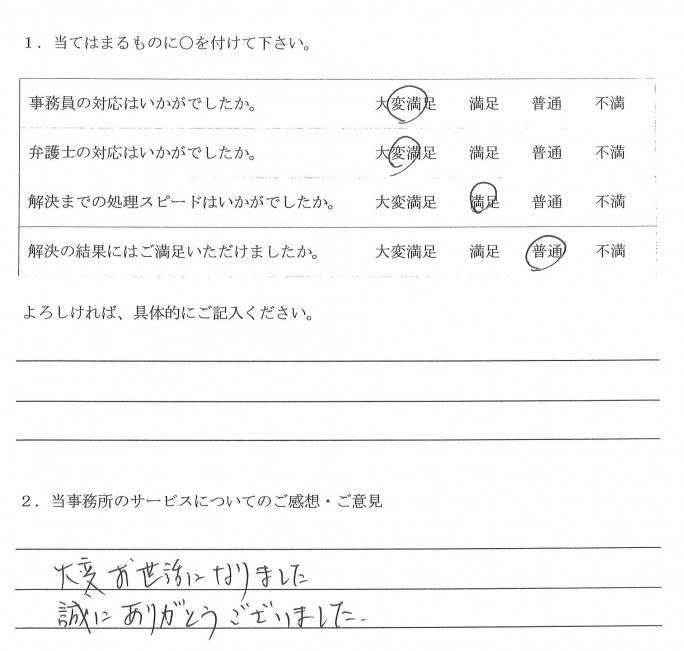 １．当てはまるものに○を付けて下さい。
事務員の対応はいかがでしたか。 大変満足 満足 普通 不満
弁護士の対応はいかがでしたか。 大変満足 満足 普通 不満
解決までの処理スピードはいかがでしたか。 大変満足 満足 普通 不満
解決の結果にはご満足いただけましたか。 大変満足 満足 普通 不満
よろしければ、具体的にご記入ください。
２．当事務所のサービスについてのご感想・ご意見
大変お世話になりました
誠にありがとうございました.